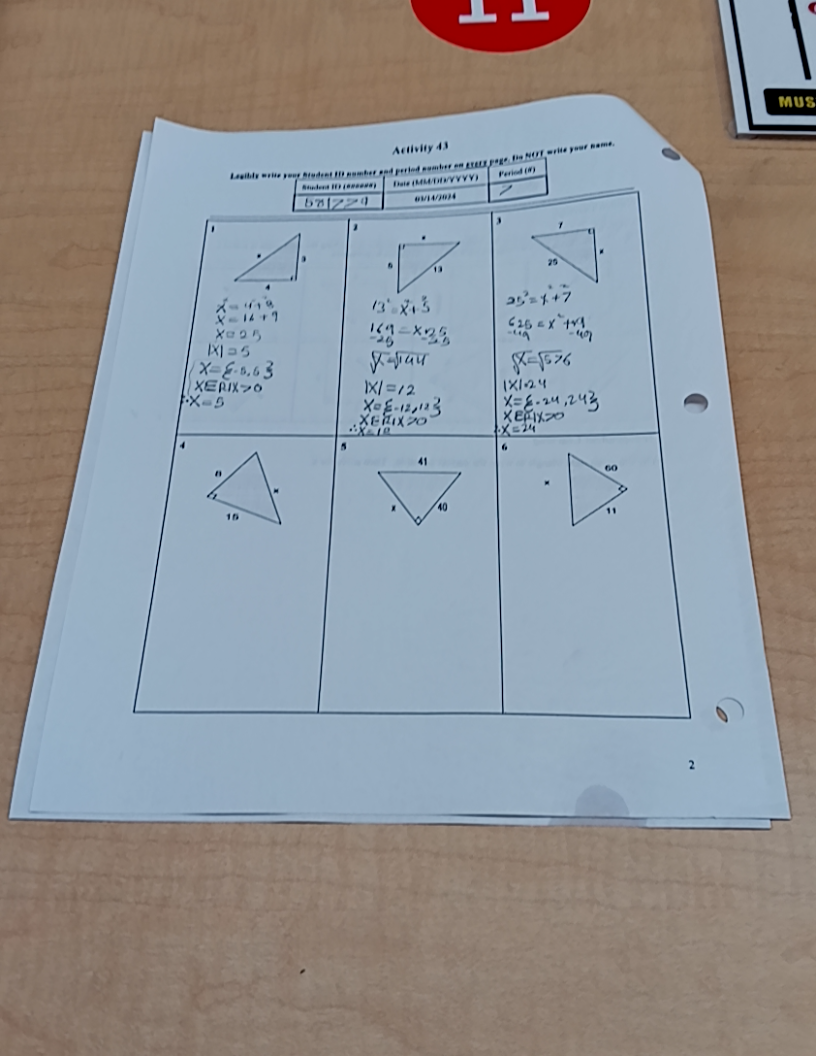 11
MUS
Activity 43
Legibly write your Student ID number and period number on every page. Do NOT write your name.
Student ID (######) Date (MM/DD/YYYY) Period (#)
03/14/2024 7
1
x
3
4
x² = 4²+3²
x = 16+9
x = 25
|x| = 5
x = {-5,5}
x∈R|x>0
∴x=5
2
x
5
13
13² = x²+5²
169 = x+25
-25 -25
√x=√144
|x| = 12
x={-12,12}
x∈R|x>0
∴x=12
3
7
x
25
25² = x²+7²
625 = x²+49
-49 -49
√x=√576
|x|=24
x={-24,24}
x∈R|x>0
∴x=24
4
8
x
15
5
41
x
40
6
x
60
11
2